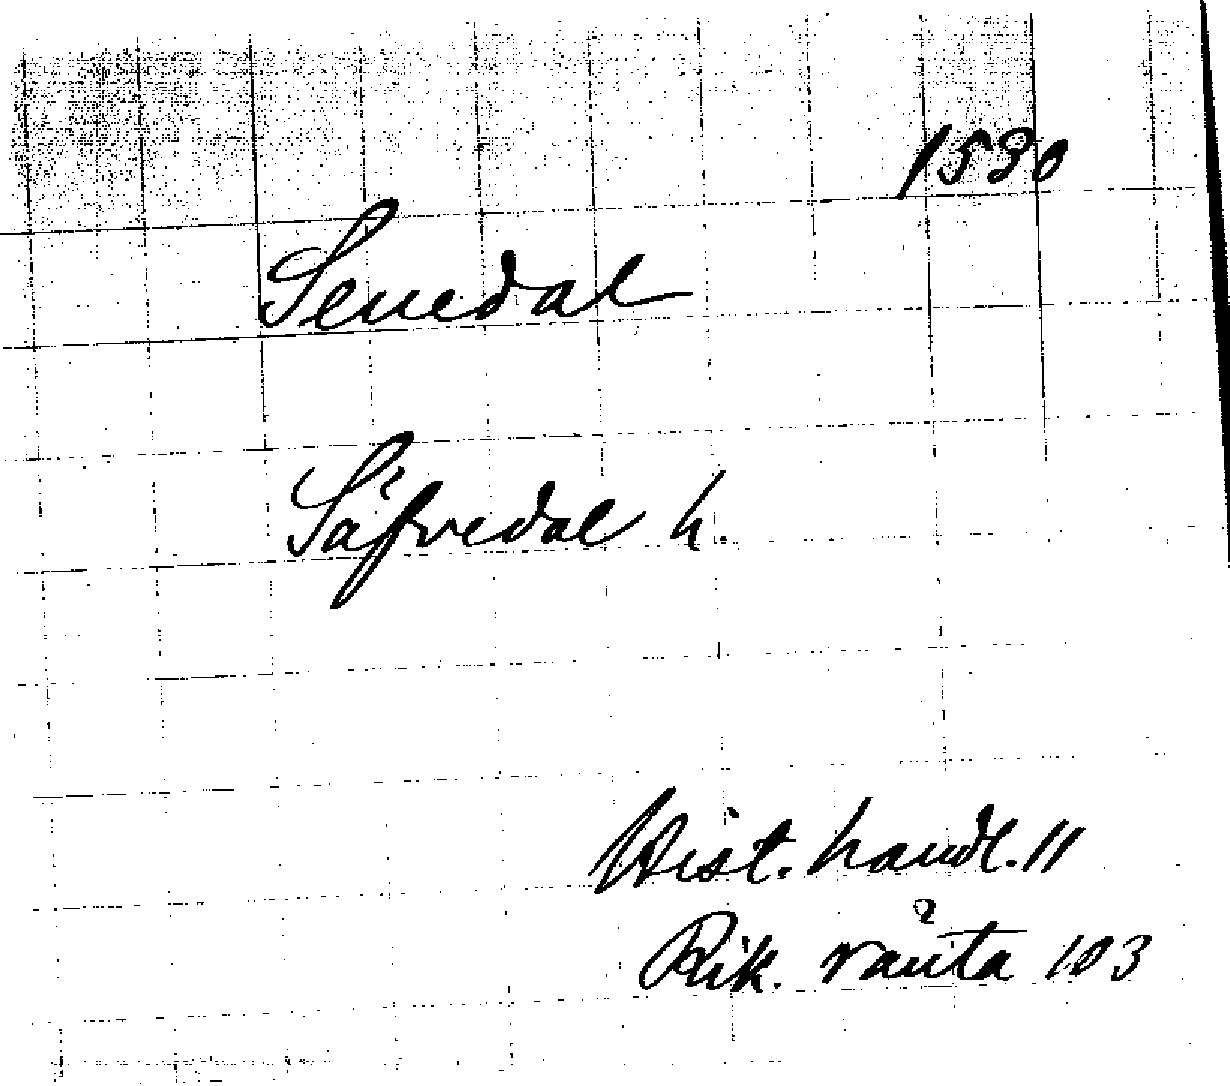 1530
Seuedal
Säfvedal h.
Hist. handl. 11
Rik. ränta 103